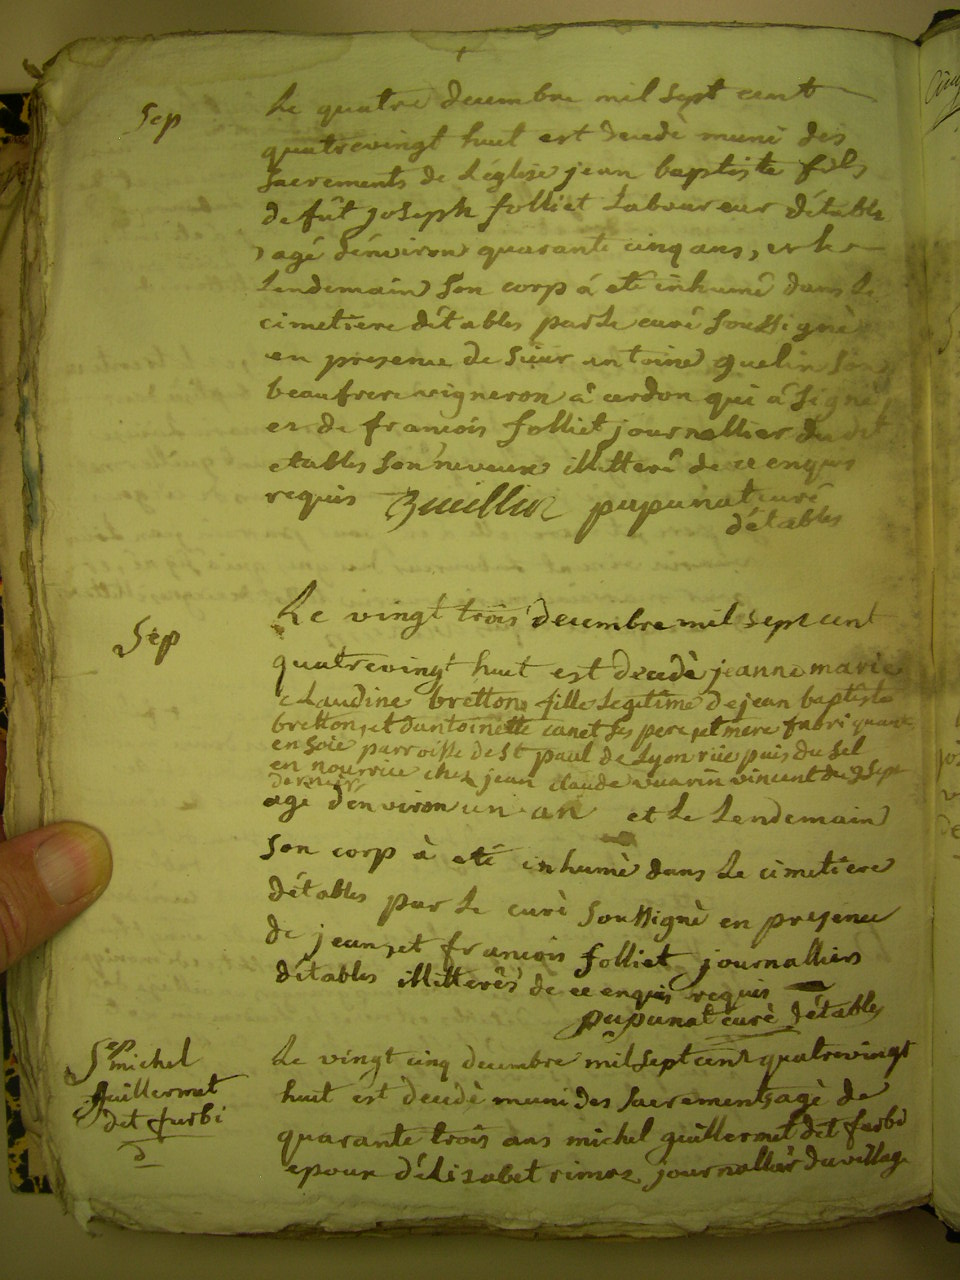 Sep
Le quatre decembre mil sept cent
quatrevingt huit est decedè muni des
sacrements de L'église jean baptiste fils
de fût joseph folliet Laboureur d'étables
agé d'environ quarante cinq ans, et le
Lendemain son corp á eté inhumê dans Le
cimetiere d'étables par Le curé soussignè
en presence de sieur antoine guelin son
beaufrere vigneron à cerdon qui á signé
et de françois folliet journallier du dit
etables son neveux illitterê de ce enquis
requis papunat curé
d'étables
Sep
Le vingt trois decembre mil sept cent
quatrevingt huit est decedè jeanne marie
Claudine bretton fille Legitime de jean baptiste
bretton et d'antoinette canet ses pere et mere fabriquants
en soie parroisse de st paul de Lyon rüe puis du sel
en nourrice chez jean claude vuarin vincent du 9 sept
dernier
age d'environ un an et Le Lendemain
son corp à eté inhumè dans Le cimetiere
d'étables par Le curè soussignè en presence
de jean et françois folliet journalliers
d'étables illitterês de ce enquis requis
papunat curè d'étables
Sep michel
guillermet
dit furbi
Le vingt cinq decembre mil sept cent quatrevingt
huit est decedè muni des sacrements agè de
quarante trois ans michel guillermet dit furbi
epoux d'élisabet journallier du village